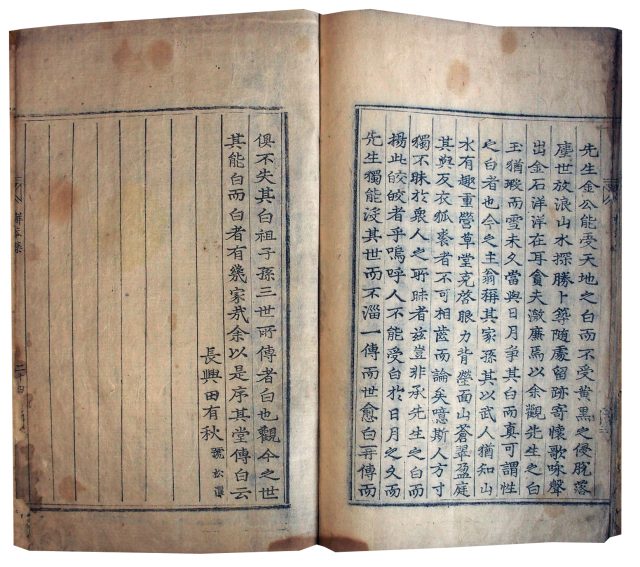 先生金公能受天地之白而不受黃黒之侵脫落
塵世放浪山水探勝卜築隨處留跡寄懷歌咏聲
出金石洋洋在耳貪夫激廉焉以余觀先生之白
玉猶瑕而雪未久當與日月爭其白而真可謂性
之白者也今之主翁稱其家孫其以武人猶知山
水有趣重營草堂克啓眼力背瑩面山蒼翠盈庭
其與反衣狐裘者不可相齒而論矣噫斯人方寸
獨不昧於衆人之所昧者玆豈非承先生之白而
揚此皎皎者乎嗚呼人不能受白於日月之久而
先生獨能浸其世而不淄一傳而世愈白再傳而
俱不失其白祖子孫三世所傳者白也觀今之世
其能白而白者有幾家㦲余以是序其堂傳白云
長興田有秋 號松潭
二十四